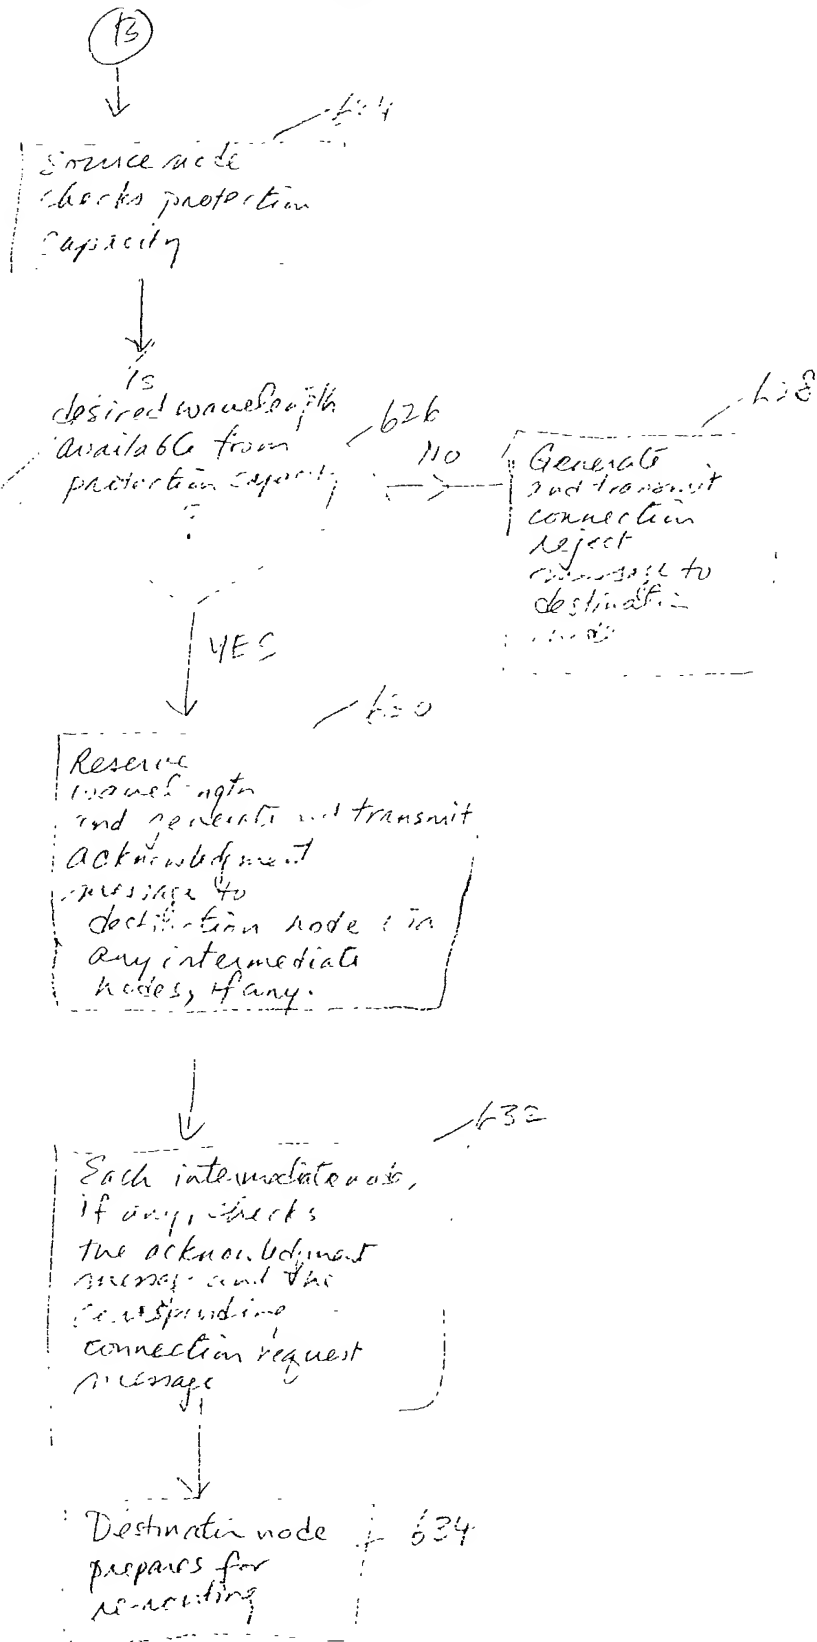 B
624
Source node
checks protection
capacity
Is
desired wavelength
available from
protection capacity
?
626
No
628
Generate
and transmit
connection
reject
message to
destination
node
YES
630
Reserve
wavelength
and generate and transmit
acknowledgment
message to
destination node
any intermediate
nodes, if any.
632
Each intermediate node,
if any, checks
the acknowledgment
message and the
corresponding
connection request
message
Destination node
prepares for
re-routing
634